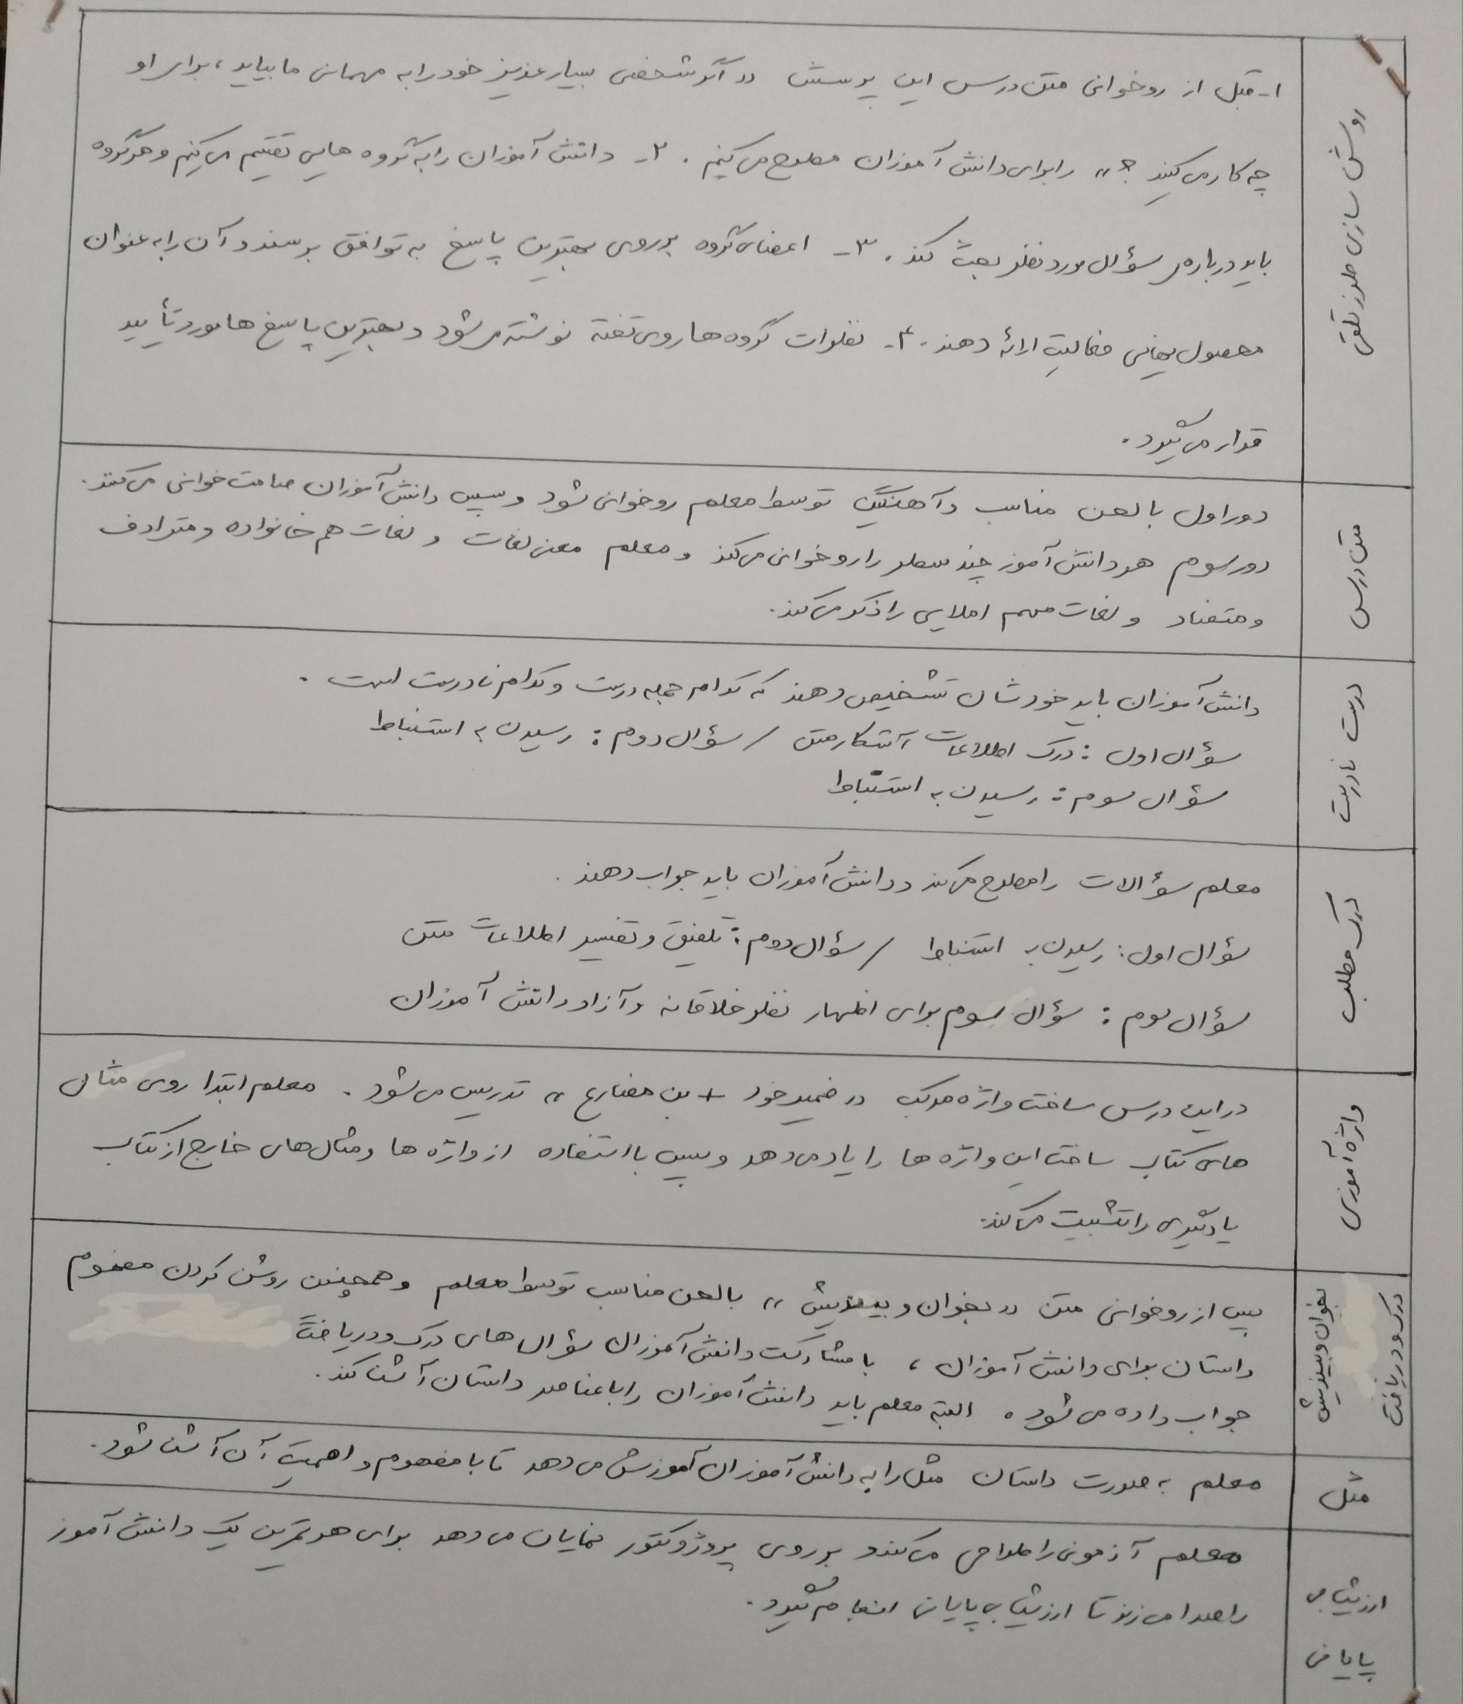 روشن سازی طرز تلقی
۱- قبل از روخوانی متن درس این پرسش «اگر شخصی بسیار عزیز خود را به مهمانی ما بیاید، برای او
چه کار می‌کنید؟» را برای دانش آموزان مطرح می‌کنیم. ۲- دانش آموزان را به گروه هایی تقسیم می‌کنیم و هر گروه
باید درباره‌ی سؤال مورد نظر بحث کند. ۳- اعضای گروه بر روی بهترین پاسخ به توافق برسند و آن را به عنوان
محصول نهایی فعالیت ارائه دهند. ۴- نظرات گروه ها روی تخته نوشته می‌شود و بهترین پاسخ ها مورد تأیید
قرار می‌گیرد.
متن درس
دور اول با لحن مناسب و آهنگین توسط معلم روخوانی شود و سپس دانش آموزان صامت خوانی می‌کنند.
دور سوم هر دانش آموز چند سطر را روخوانی می‌کند و معلم معنی لغات و لغات هم خانواده و مترادف
و متضاد و لغات مهم املایی را ذکر می‌کند.
درست نادرست
دانش آموزان باید خودشان تشخیص دهند که کدام جمله درست و کدام نادرست است.
سؤال اول: درک اطلاعات آشکار متن / سؤال دوم: رسیدن به استنباط
سؤال سوم: رسیدن به استنباط
درک مطلب
معلم سؤالات را مطرح می‌کند و دانش آموزان باید جواب دهند.
سؤال اول: رسیدن به استنباط / سؤال دوم: تلفیق و تفسیر اطلاعات متن
سؤال سوم: سؤال سوم برای اظهار نظر خلاقانه و آزاد دانش آموزان
واژه آموزی
در این درس ساخت واژه مرکب «ضمیر خود + بن مضارع» تدریس می‌شود. معلم ابتدا روی مثال
های کتاب ساخت این واژه ها را یاد می‌دهد و سپس با استفاده از واژه ها و مثال‌های خارج از کتاب
یادگیری را تثبیت می‌کند.
درک و دریافت
بخوان و بیندیش
پس از روخوانی متن «بخوان و بیندیش» با لحن مناسب توسط معلم و همچنین روشن کردن مفهوم
داستان برای دانش آموزان، با مشارکت دانش آموزان سؤال های درک و دریافت
جواب داده می‌شود. البته معلم باید دانش آموزان را با عناصر داستان آشنا کند.
مثل
معلم به صورت داستان مثل را به دانش آموزان آموزش می‌دهد تا با مفهوم و اهمیت آن آشنا شود.
ارزشیابی
پایانی
معلم آزمونی را طراحی می‌کند و بر روی پروژکتور نمایان می‌دهد برای هر تمرین یک دانش آموز
را صدا می‌زند تا ارزشیابی پایانی انجام گیرد.